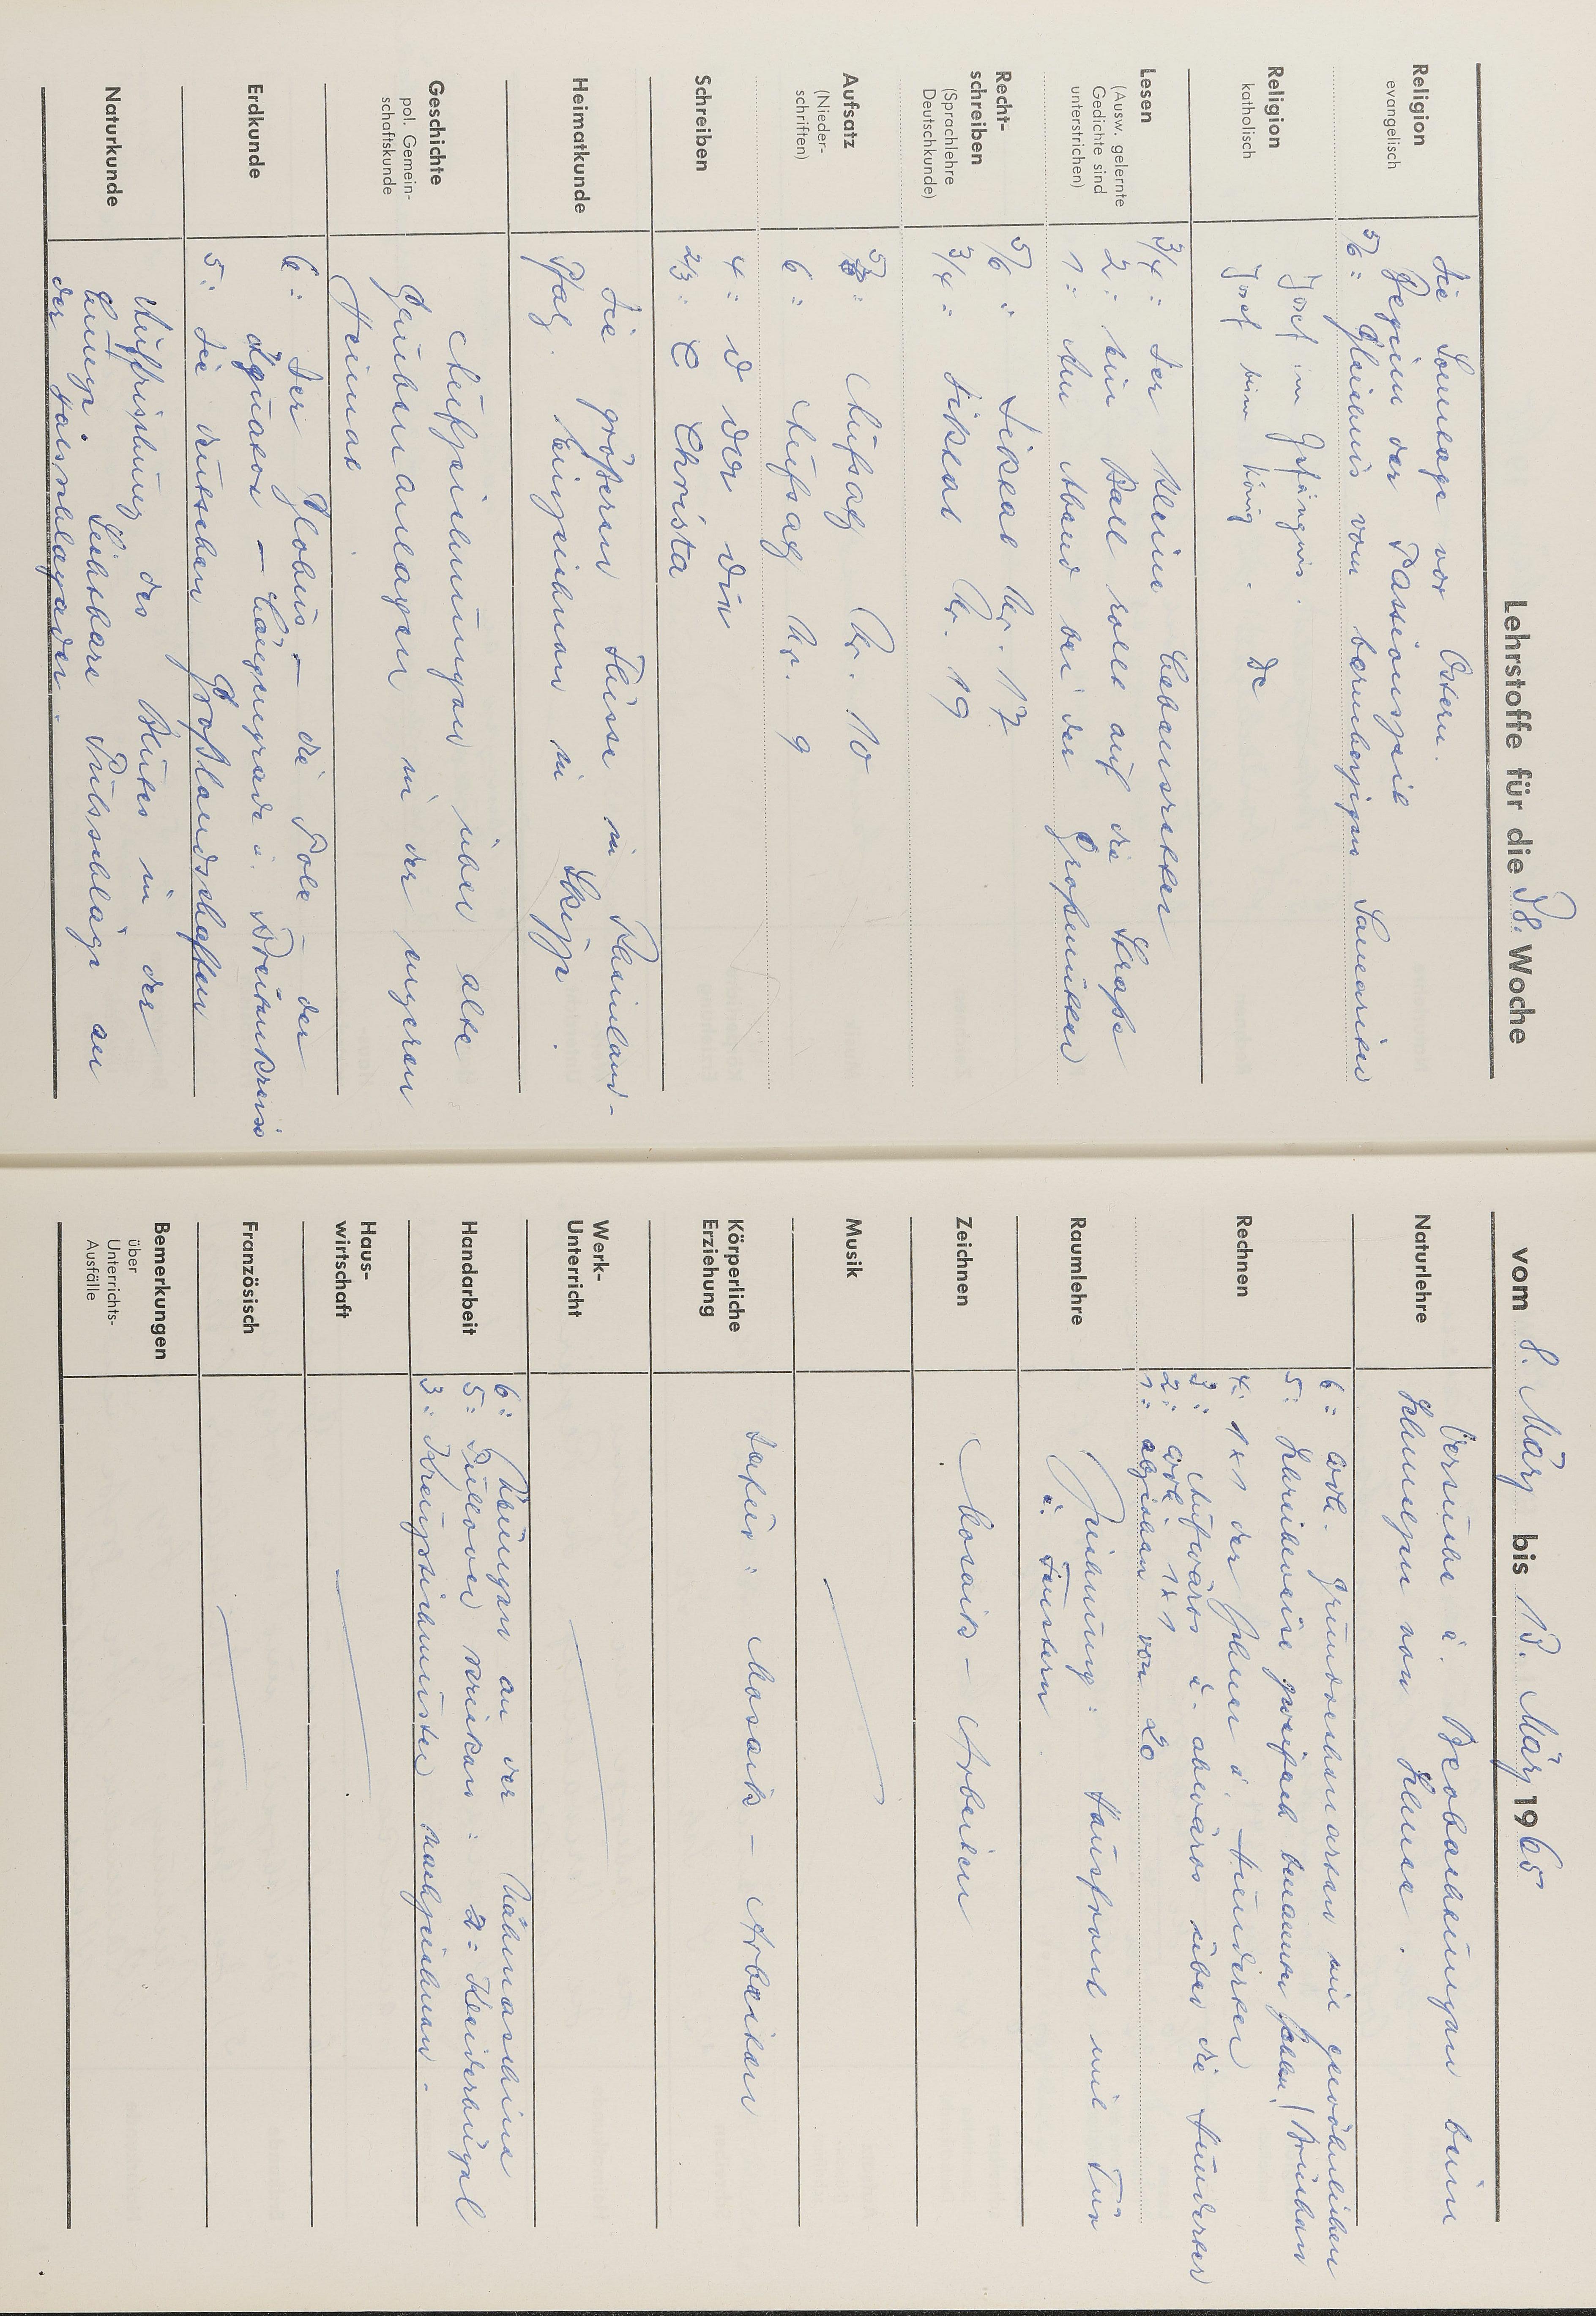 Lehrstoffe für die 38. Woche
Religion
evangelisch
Die Sonntage vor Ostern.
Beginn der Passionszeit
5/6: Gleichnis vom barmherzigen Samariter
Religion
katholisch
Josef im Gefängnis.
Josef beim König.
Lesen
(Ausw. gelernte
Gedichte sind
unterstrichen)
3/4: Der kleine Lebensretter
2: Ein Ball rollt auf die Straße
1: Am Abend bei der Großmutter
Recht-
schreiben
(Sprachlehre
Deutschkunde)
5/6: Diktat Nr. 17
3/4: Diktat Nr. 19
Aufsatz
(Nieder-
schriften)
5: Aufsatz Nr. 10
6: Aufsatz Nr. 9
Schreiben
4: D der Du
2/3: C Christa
Heimatkunde
Die größeren Flüsse in Rheinland-
Pfalz. Einzeichnen in Skizze.
Geschichte
pol. Gemein-
schaftskunde
Aufzeichnungen über alte
Grubenanlagen in der engeren
Heimat
Erdkunde
6: Der Globus – die Pole – der
Äquator – Längengrade u. Breitenkreise
5: Die deutschen Großlandschaften
Naturkunde
Auffrischung des Blutes in der
Lunge. Sichtbare Pulsschläge an
der Halsschlagader.
vom 8. März bis 13. März 1965
Naturlehre
Versuche u. Beobachtungen beim
Schmelzen von Schnee.
Rechnen
6: Wdh. Grundrechenarten mit gewöhnlichen
5: Schreibweise zweifach benannter Zahlen / Brüchen
4: 1x1 der Zehner u. Hunderter
3: Aufwärts u. abwärts über die Hunderter
2: Wdh. 1x1
1: abziehen von 20
Raumlehre
Zeichnung: Hausfront mit Tür
u. Fenstern
Zeichnen
Mosaik – Arbeiten
Musik
Körperliche
Erziehung
Dafür: Mosaik – Arbeiten
Werk-
Unterricht
Handarbeit
6: Übungen an der Nähmaschine
5: Pullover stricken: 4: Kleiderbügel
3: Kreuzstichmuster nachzeichnen.
Haus-
wirtschaft
Französisch
Bemerkungen
über
Unterrichts-
Ausfälle